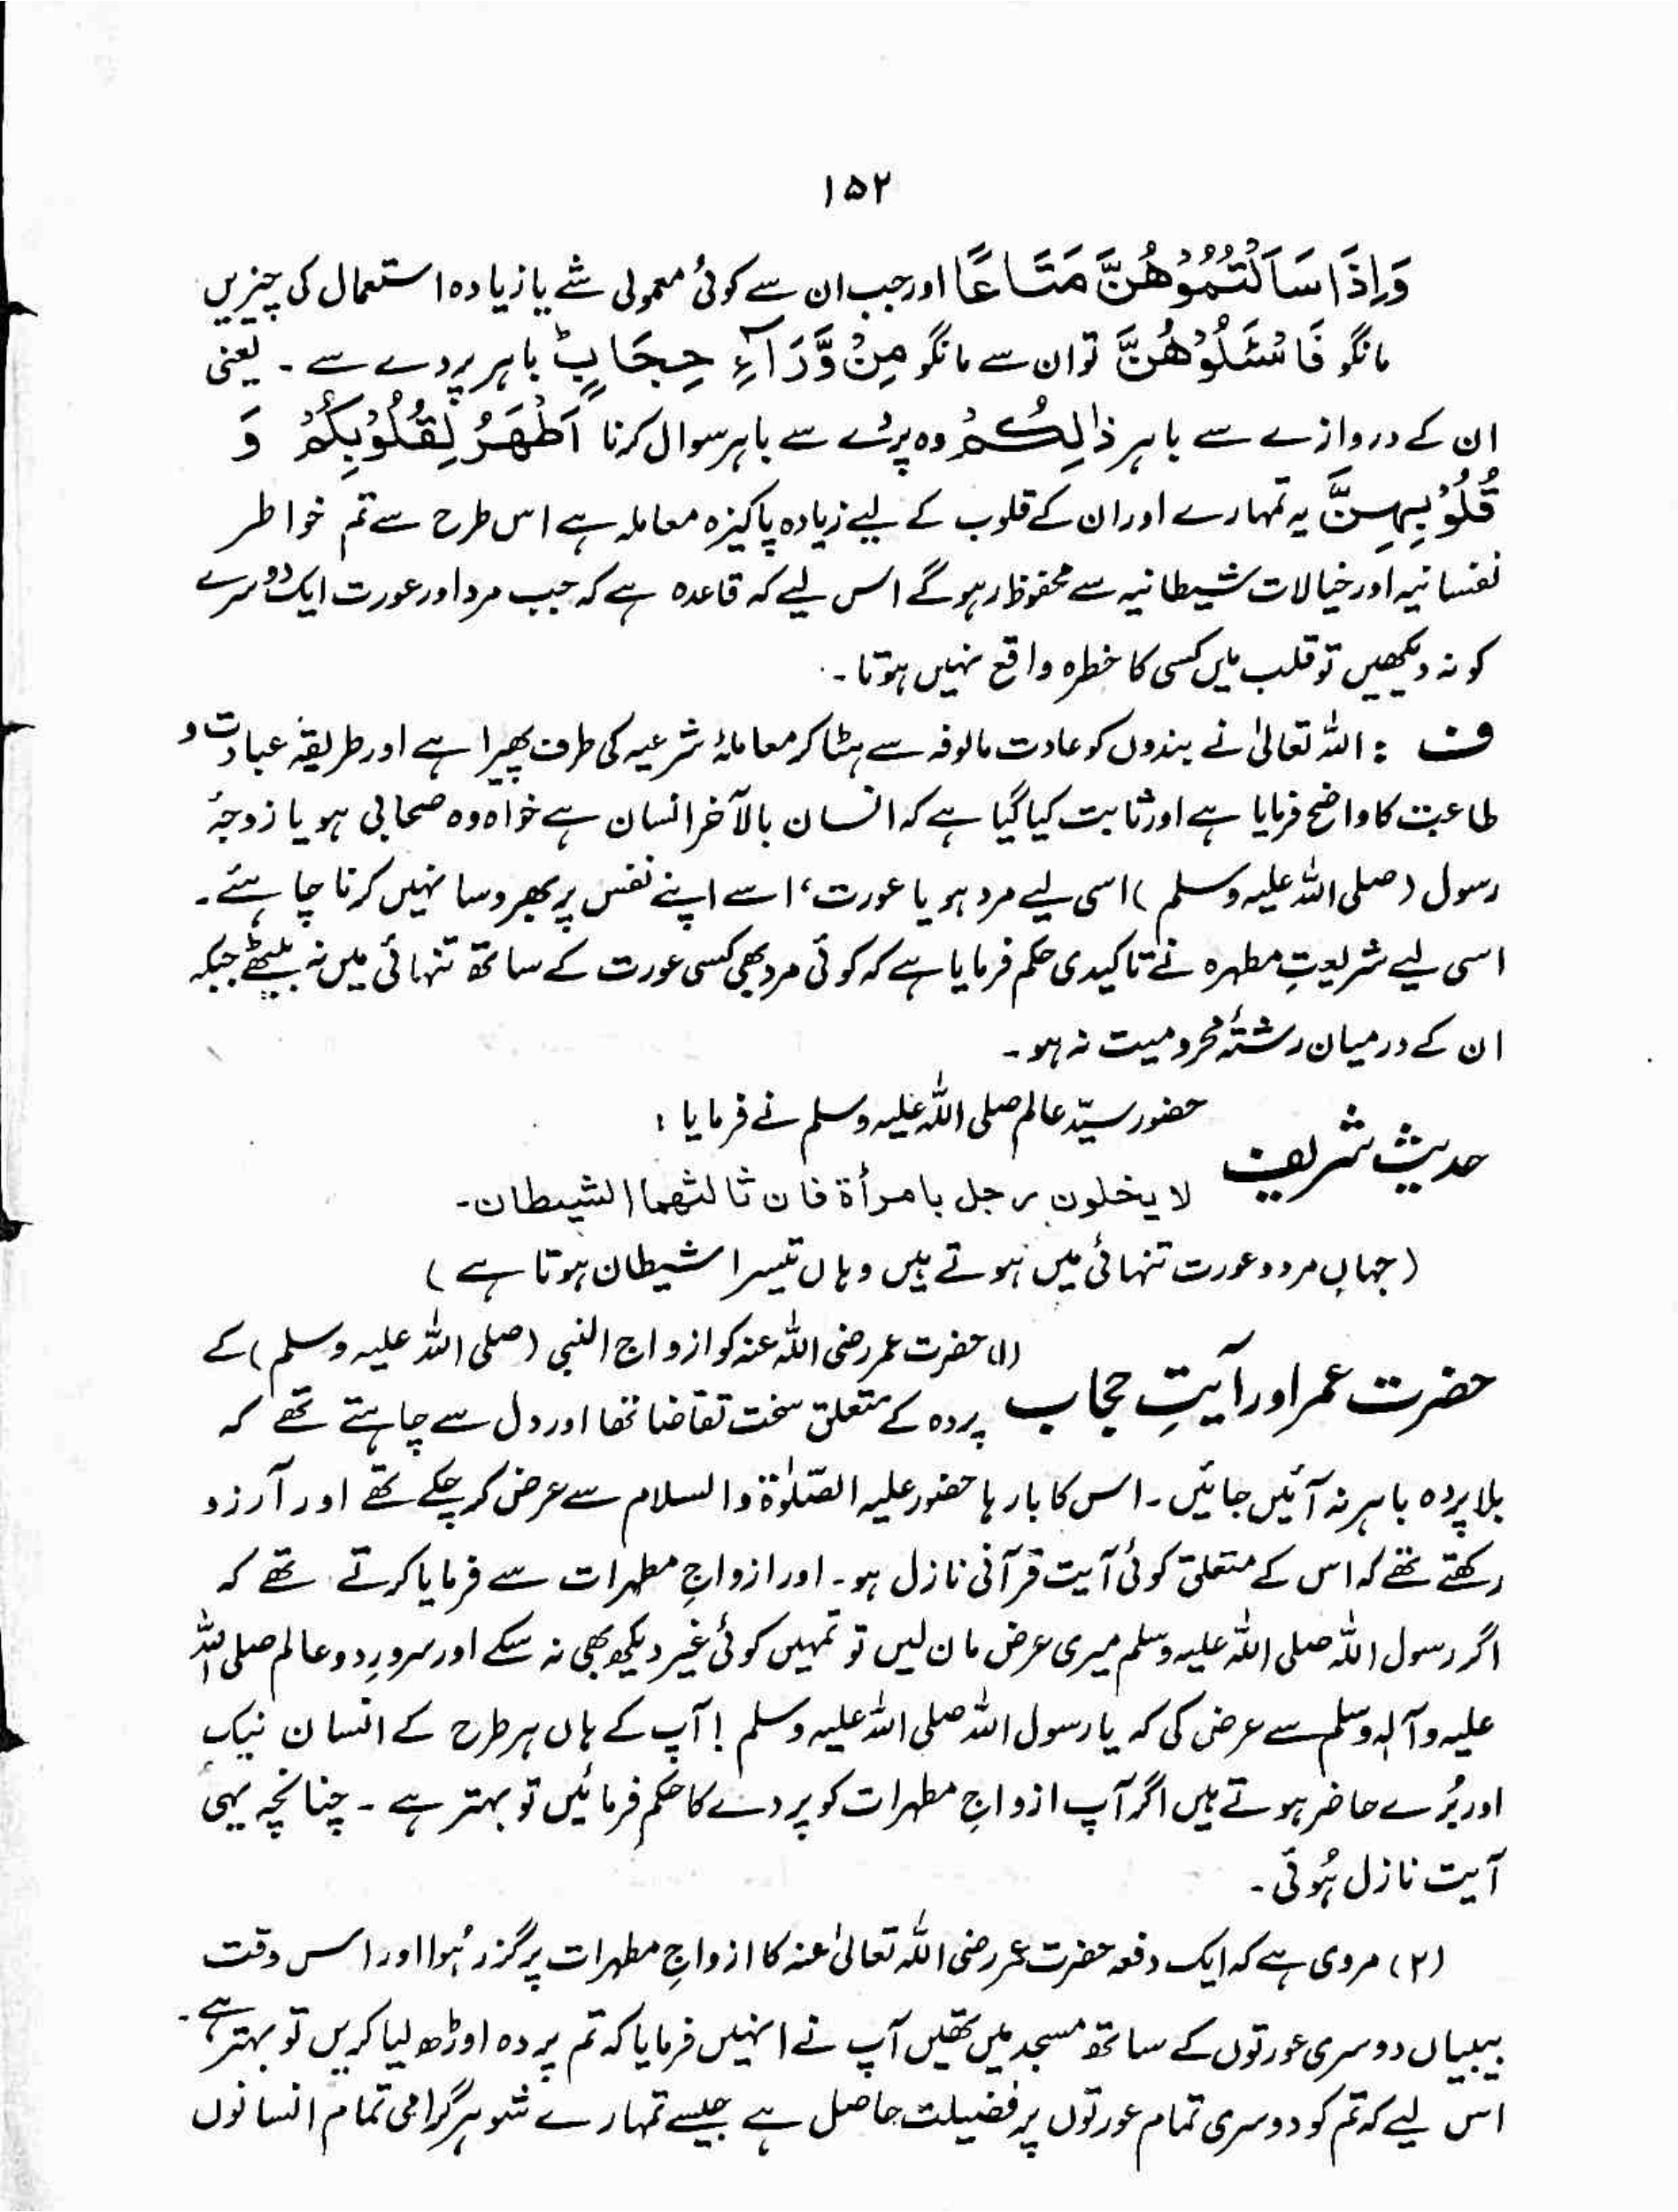 ۱۵۲
وَاِذَا سَاَلْتُمُوْهُنَّ مَتَاعًا اور جب ان سے کوئی معمولی شے یا زیادہ استعمال کی چیزیں
مانگو فَاسْئَلُوْهُنَّ تو ان سے مانگو مِنْ وَّرَآءِ حِجَابٍ باہر پردے سے ۔ یعنی
ان کے دروازے سے باہر ذٰلِكُمْ وہ پردے سے باہر سوال کرنا اَطْهَرُ لِقُلُوْبِكُمْ وَ
قُلُوْبِهِنَّ یہ تمہارے اور ان کے قلوب کے لیے زیادہ پاکیزہ معاملہ ہے اس طرح سے تم خواطر
نفسانیہ اور خیالات شیطانیہ سے محفوظ رہو گے اس لیے کہ قاعدہ ہے کہ جب مرد اور عورت ایک دوسرے
کو نہ دیکھیں تو قلب میں کسی کا خطرہ واقع نہیں ہوتا ۔
ف : اللہ تعالیٰ نے بندوں کو عادت مالوفہ سے ہٹا کر معاملۂ شرعیہ کی طرف پھیرا ہے اور طریقہ عبادت و
طاعت کا واضح فرمایا ہے اور ثابت کیا گیا ہے کہ انسان بالآخر انسان ہے خواہ وہ صحابی ہو یا زوجۂ
رسول (صلی اللہ علیہ وسلم) اسی لیے مرد ہو یا عورت، اسے اپنے نفس پر بھروسا نہیں کرنا چاہئے ۔
اسی لیے شریعتِ مطہرہ نے تاکیدی حکم فرمایا ہے کہ کوئی مرد بھی کسی عورت کے ساتھ تنہائی میں نہ بیٹھے جبکہ
ان کے درمیان رشتۂ محرومیت نہ ہو ۔
حدیث شریف حضور سیّد عالم صلی اللہ علیہ وسلم نے فرمایا :
لا یخلون رجل بامرأة فان ثالثهما الشیطان ۔
(جہاں مرد و عورت تنہائی میں ہوتے ہیں وہاں تیسرا شیطان ہوتا ہے)
حضرت عمر اور آیتِ حجاب (۱) حضرت عمر رضی اللہ عنہ کو ازواج النبی (صلی اللہ علیہ وسلم) کے
پردہ کے متعلق سخت تقاضا تھا اور دل سے چاہتے تھے کہ
بلا پردہ باہر نہ آئیں جائیں ۔ اس کا بارہا حضور علیہ الصّلوٰۃ والسلام سے عرض کر چکے تھے اور آرزو
رکھتے تھے کہ اس کے متعلق کوئی آیت قرآنی نازل ہو ۔ اور ازواجِ مطہرات سے فرمایا کرتے تھے کہ
اگر رسول اللہ صلی اللہ علیہ وسلم میری عرض مان لیں تو تمہیں کوئی غیر دیکھ بھی نہ سکے اور سرورِ دو عالم صلی اللہ
علیہ وآلہٖ وسلم سے عرض کی کہ یا رسول اللہ صلی اللہ علیہ وسلم ! آپ کے ہاں ہر طرح کے انسان نیک
اور بُرے حاضر ہوتے ہیں اگر آپ ازواجِ مطہرات کو پردے کا حکم فرمائیں تو بہتر ہے ۔ چنانچہ یہی
آیت نازل ہُوئی ۔
(۲) مروی ہے کہ ایک دفعہ حضرت عمر رضی اللہ تعالیٰ عنہ کا ازواجِ مطہرات پر گزر ہُوا اور اس وقت
بیبیاں دوسری عورتوں کے ساتھ مسجد میں تھیں آپ نے انہیں فرمایا کہ تم پردہ اوڑھ لیا کریں تو بہتر ہے ۔
اس لیے کہ تم کو دوسری تمام عورتوں پر فضیلت حاصل ہے جیسے تمہارے شوہر گرامی تمام انسانوں